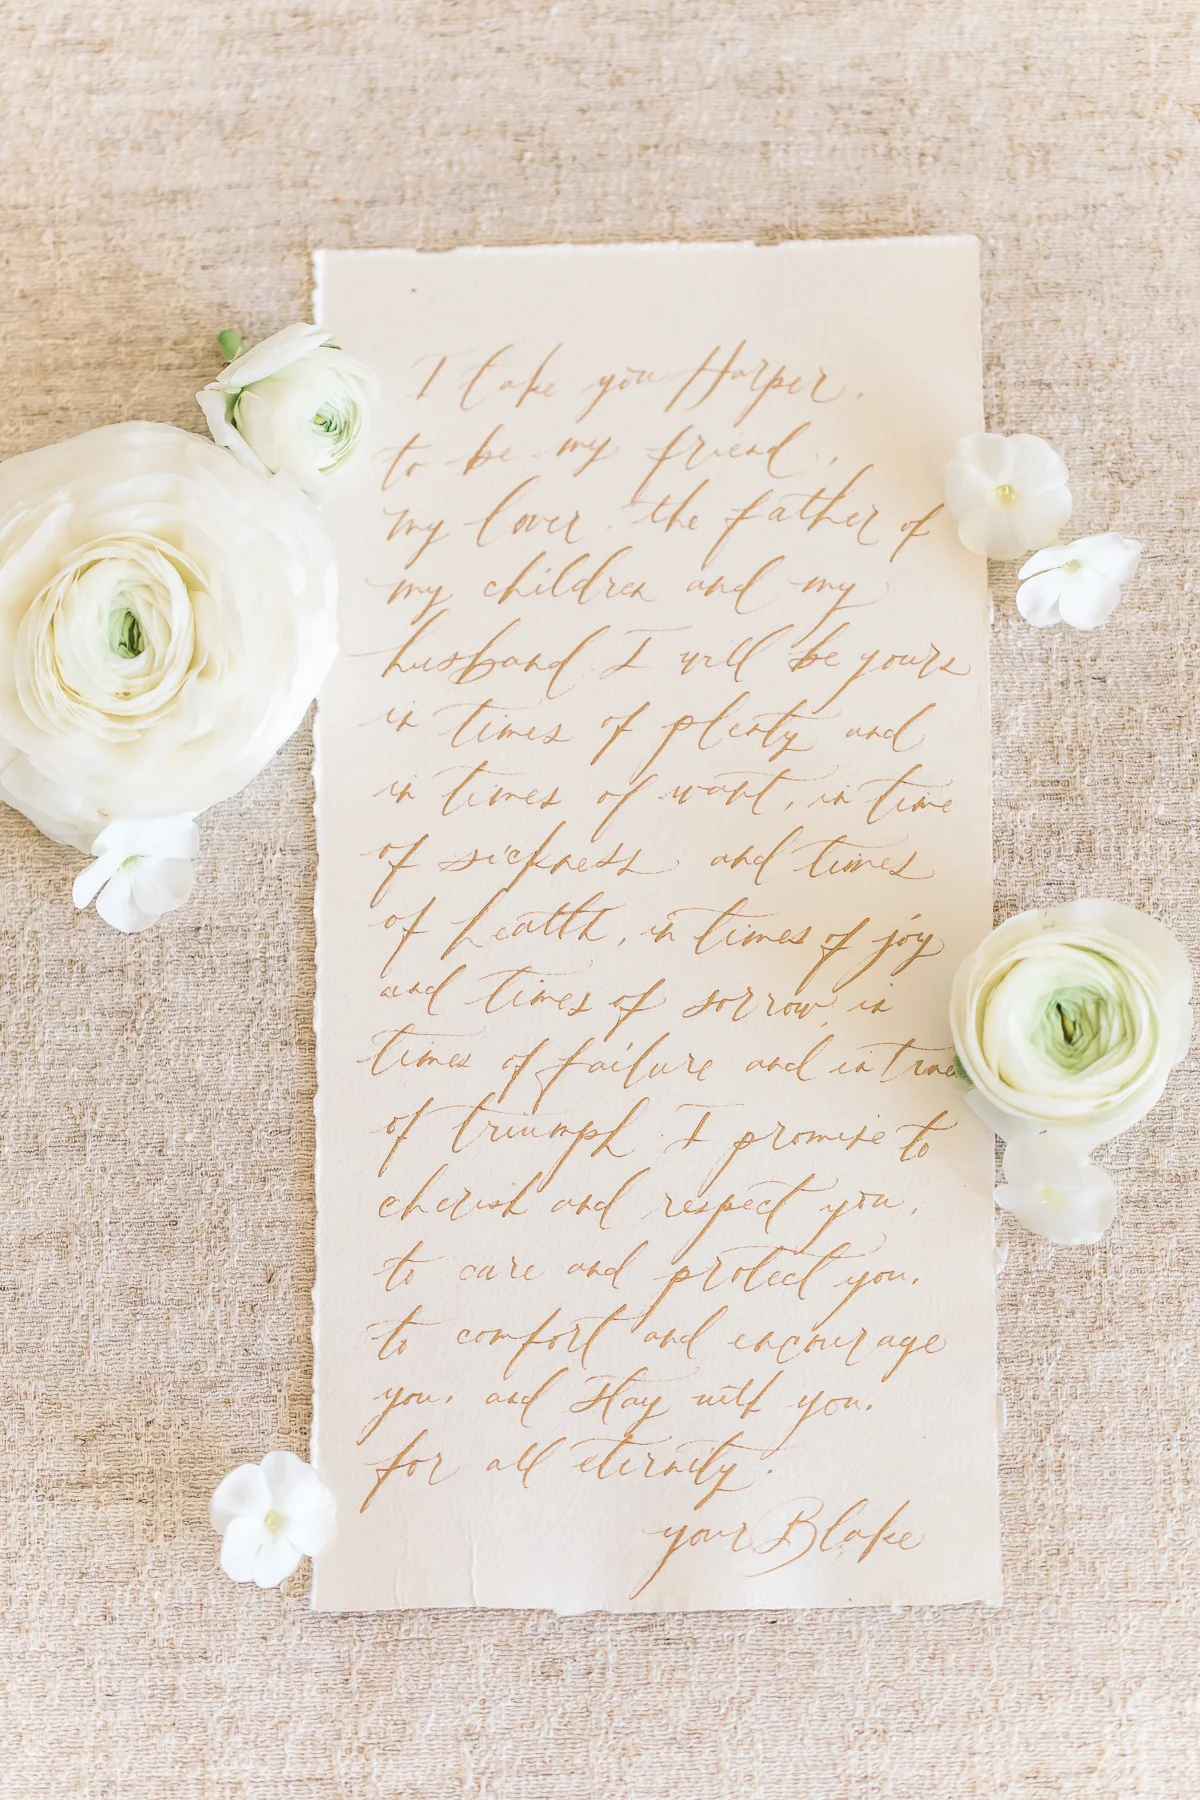 I take you Harper.
to be my friend,
my lover. the father of
my children and my
husband. I will be yours
in times of plenty and
in times of want, in time
of sickness and times
of health, in times of joy
and times of sorrow, in
times of failure and in
of triumph. I promise to
cherish and respect you,
to care and protect you,
to comfort and encourage
you, and stay with you.
for all eternity.
your Blake